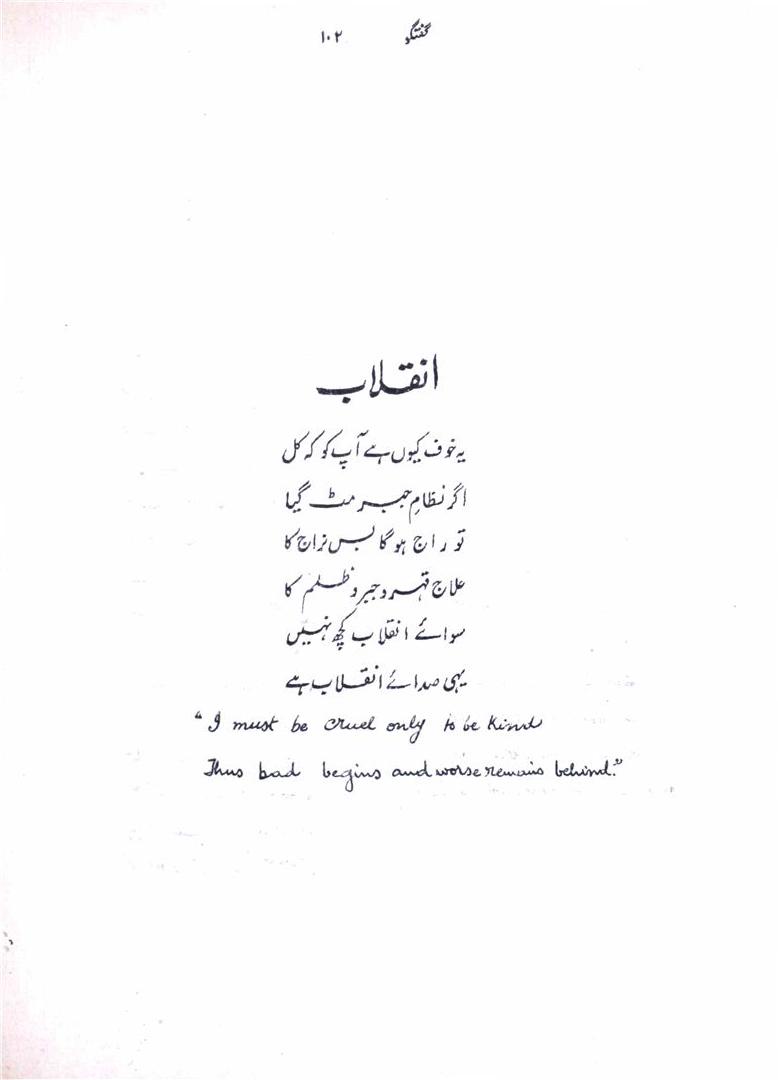 گفتگو ۱۰۲
انقلاب
یہ خوف کیوں ہے آپ کو کہ کل
اگر نظامِ جبر مٹ گیا
تو راج ہوگا بس نراج کا
علاج قہر و جبر و ظلم کا
سوائے انقلاب کچھ نہیں
یہی صدائے انقلاب ہے
“I must be cruel only to be Kind
Thus bad begins and worse remains behind.”